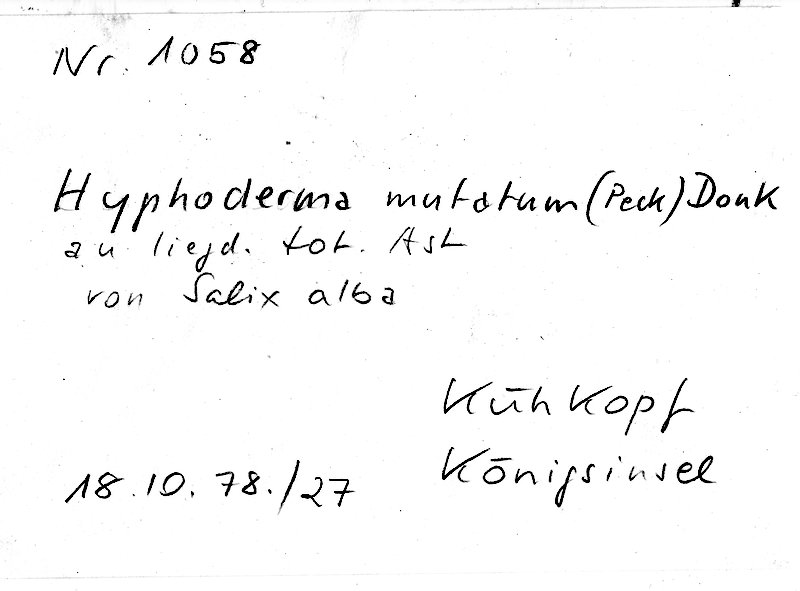 Nr. 1058
Hyphoderma mutatum (Peck) Donk
an liegd. tot. Ast
von Salix alba
Kühkopf
Königsinsel
18.10.78./27